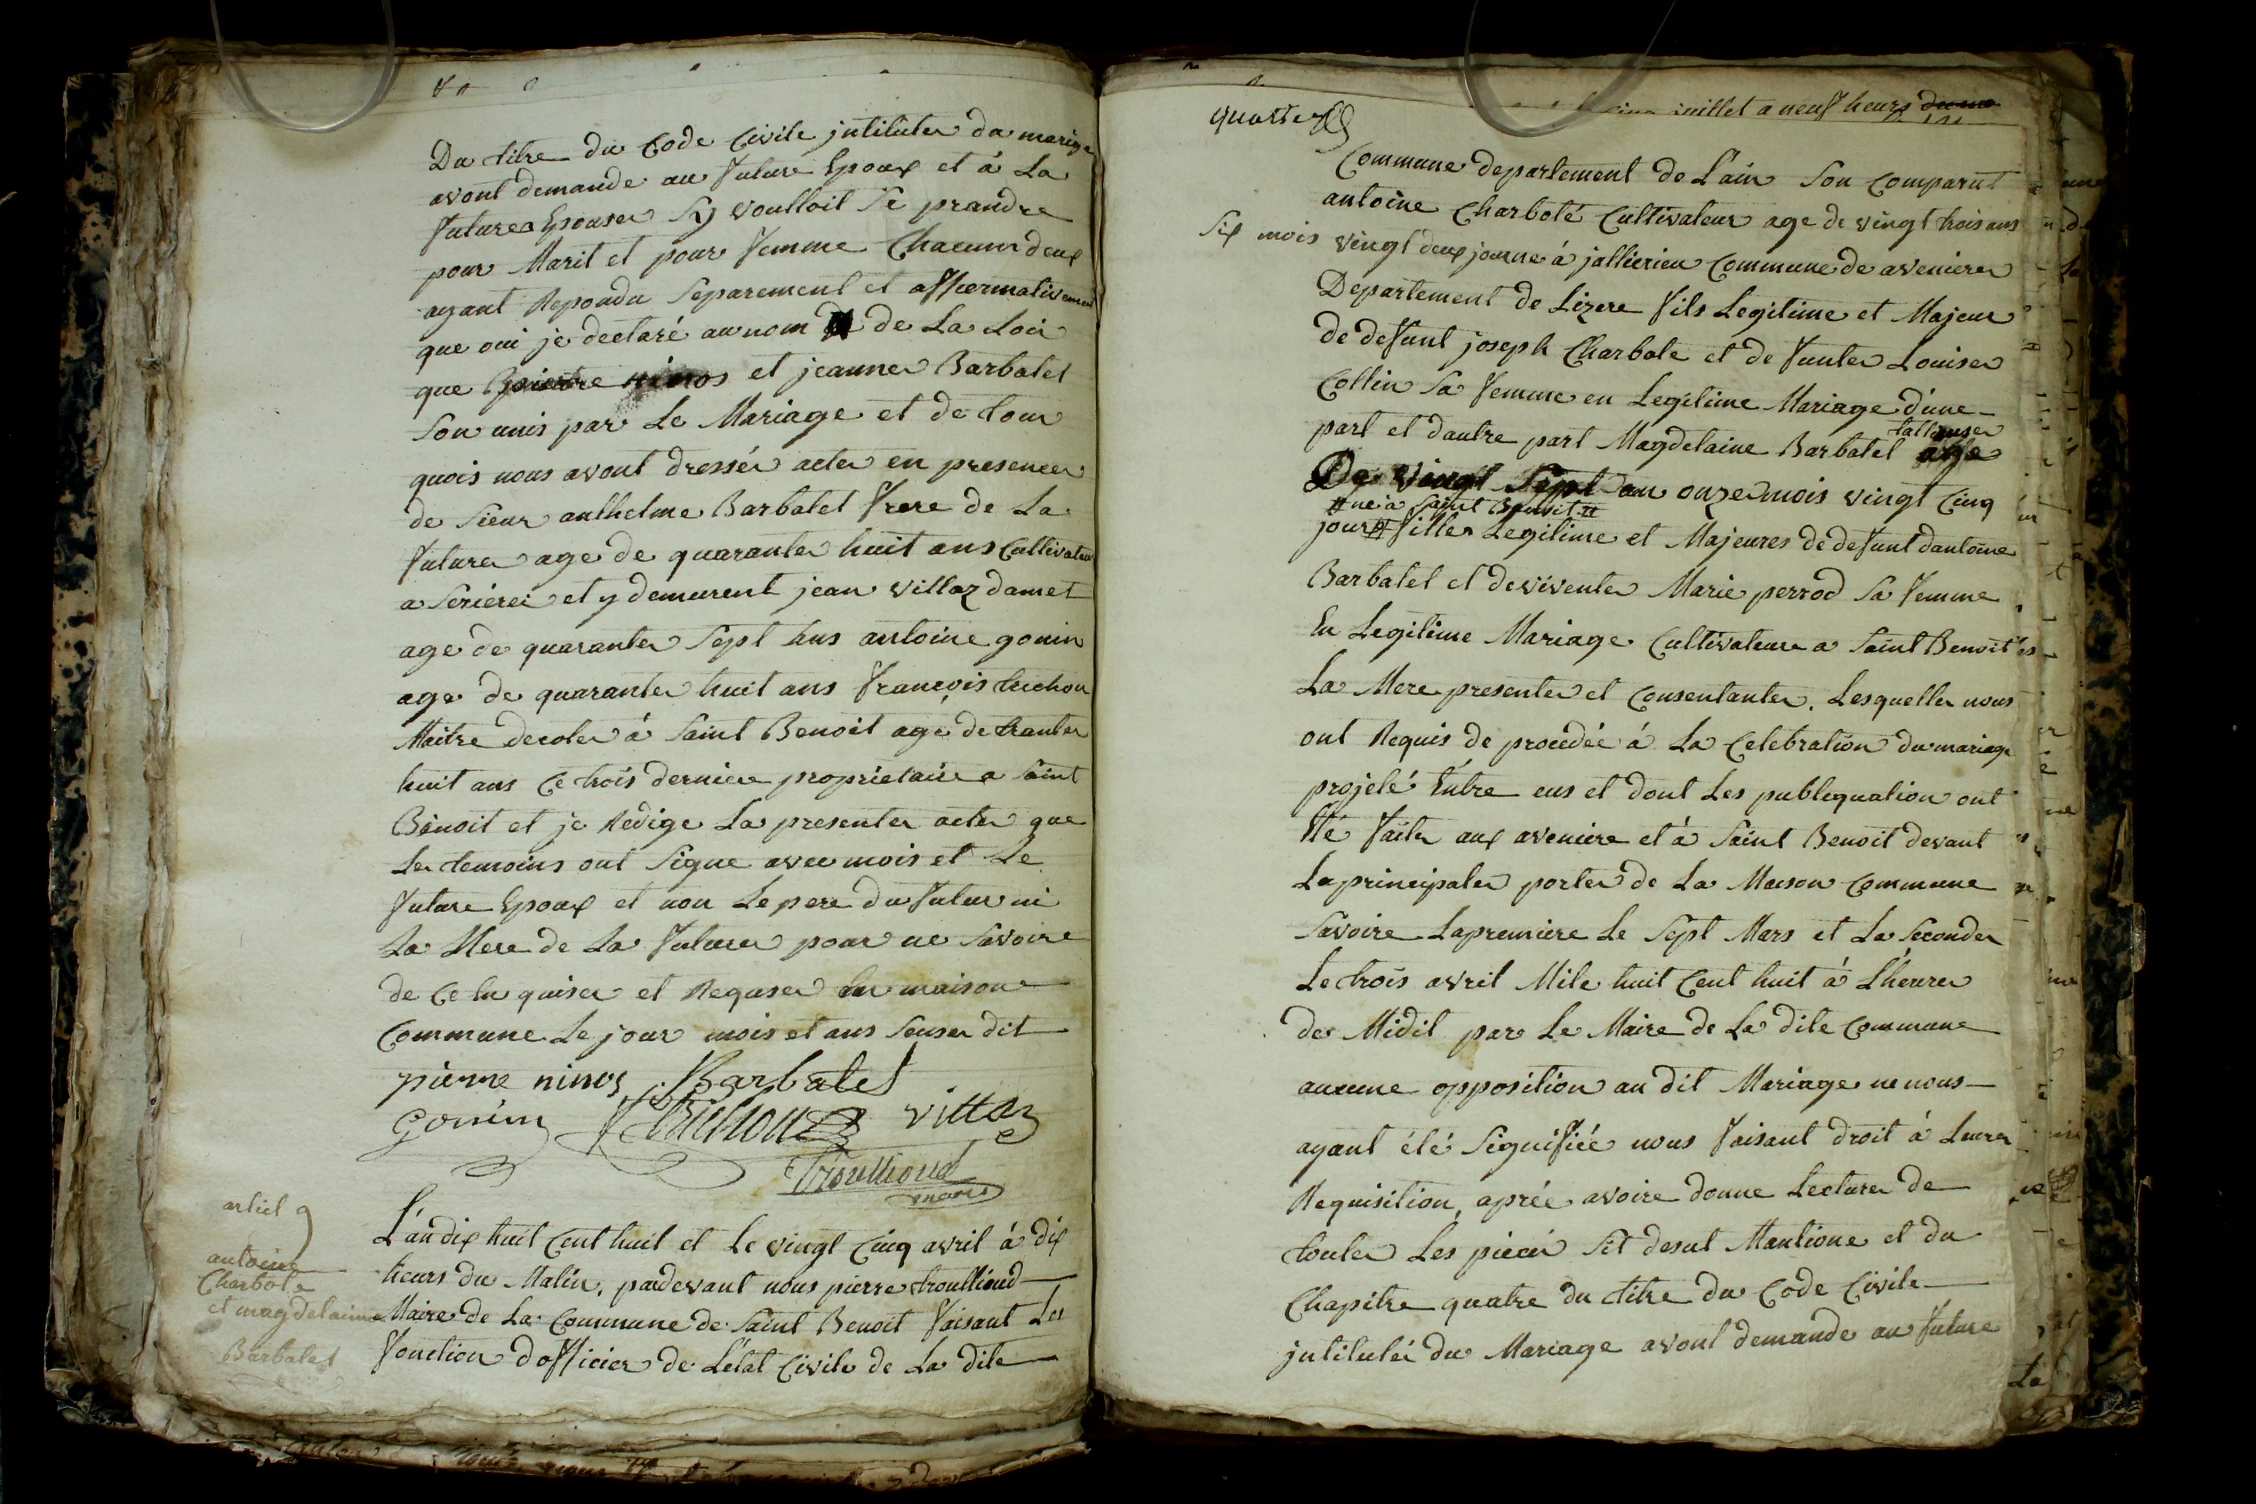 Du titre du Code Civile jntituler du mariage
avont demande au future Epoux et á La
future Epouser Sy voulloit Se prandre
pour Marit et pour femme Chacunn deux
ayant Repondu Separement et afformativement
que oui je declaré au nom de La Loir
que pierre ninos et jeanner Barbatel
Son unis par Le Mariage et de tour
quois nous avont dressér acter en presencer
de Sieur anthelme Barbatel frere de La
futurer age de quaranter huit ans Cultivateur
a Serierei et y demeurent jean villaz damet
age de quaranter Sept hus antoine gonin
age de quaranter huit ans françois trichon
Maitre decoler á Saint Benoit agé de tranter
huit ans Ce trois derniere proprietaire a Saint
Benoit et je Redige La presenter acter que
Les temoins ont Signe avec mois et Le
future Epoux et non Le pere du futur ni
La Mere de La futurer pour ne Savoire
de Ce En quiser et Requser En maison
Commune Le jour mois et ans Suser dit
pierre ninos Barbatel
Gonin Trichon villaz
Troullioud
maire
artiel 9
antoine
Charbote
et magdelaine
Barbatel
L'án dix huit Cent huit et Le vingt Cinq avril á dix
heurs du Matin, pardevant nous pierre troullioud
Maire de La Commune de Saint Benoit faisant Les
fonction dofficier de Létat Civile de La dite
quatre
juillet a neuf heurs
Commune departement de Lain Son Comparut
antoine Charboté Cultivateur age de vingt trois ans
Six mois vingt deux jour né á jallierieu Commune de avenierer
Departement de Lizere fils Legitime et Majeur
de defunt joseph Charbote et de funter Louiser
Collin Sa femme en Legitime Mariage d'une
part et dautre part Magdelaine Barbatel
talleuser
De vingt Sept an onze mois vingt Cinq
# né á Saint Benoit #
jour # filler Legitime et Majeures de defunt dantoine
Barbatel et de viventer Marie perrod Sa femme
En Legitime Mariage Cultivateur a Saint Benoit
La Mere presenter et Consentanter. Lesqueller nous
ont Requis de procedée á La Celebration du mariage
projeté Entre eus et dont Les publiquation ont
Eté faite aux aveniere et á Saint Benoit devant
La principaler porter de La Maison Commune
Savoire La premiere Le Sept Mars et La Seconder
Le trois avril Mile huit Cent huit á Lheurer
de Midit par Le Maire de La dite Commune
aucune opposition au dit Mariage ne nous
ayant été Signifiée nous faisant droit á Leurer
Requisition, aprée avoire donne Lecturer de
touter Les pieces Sit desut Mantione et du
Chapitre quatre du titre du Code Civile
jntitulér du Mariage avont demande au future